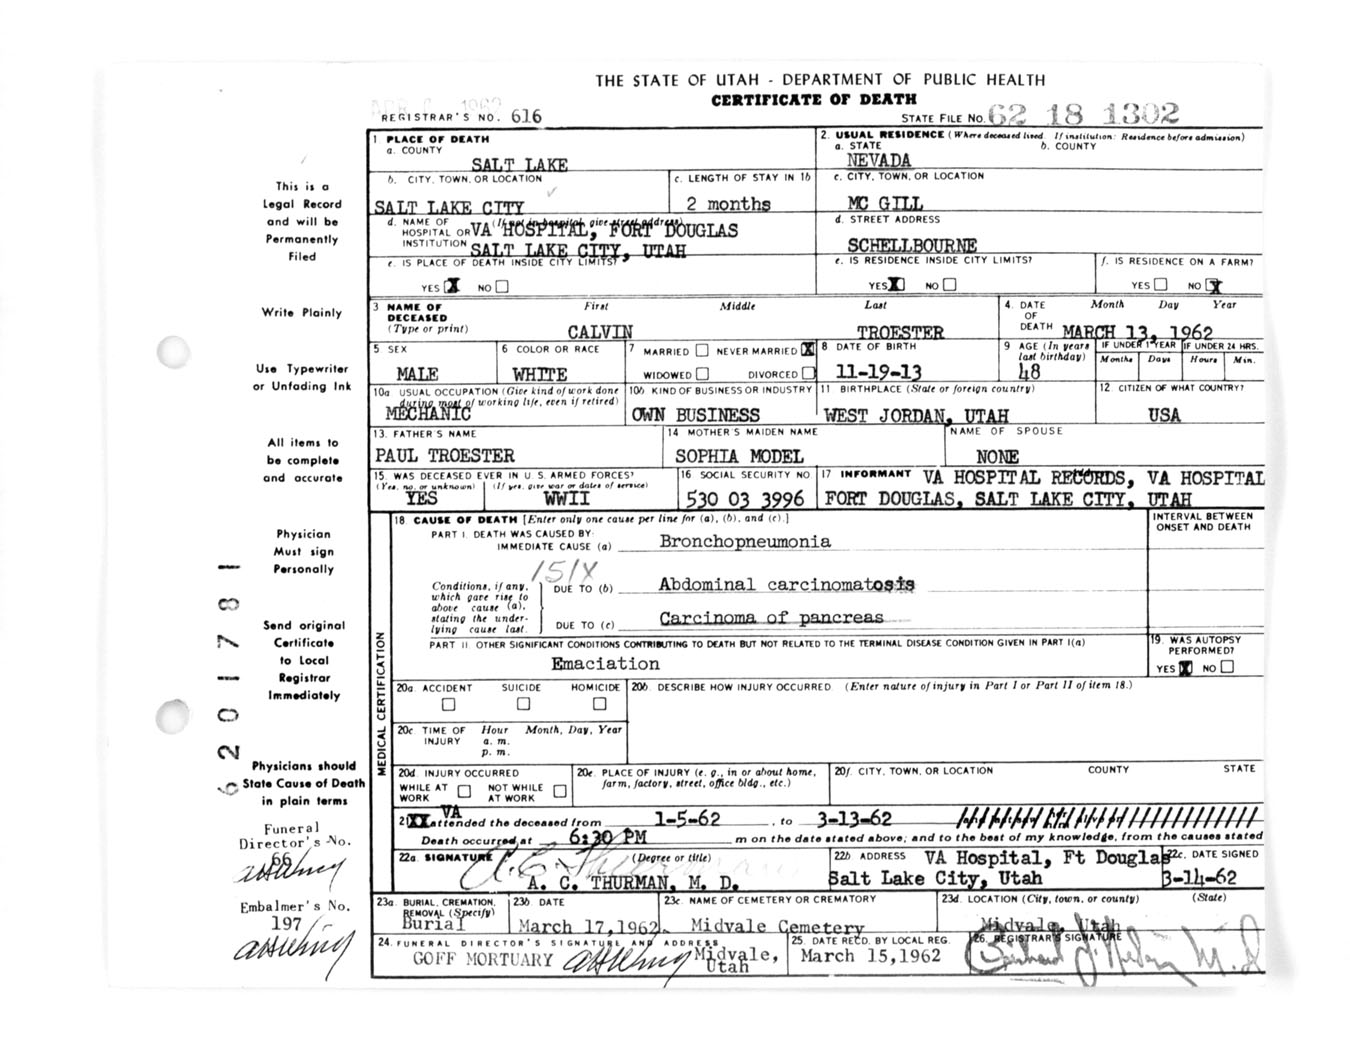 THE STATE OF UTAH - DEPARTMENT OF PUBLIC HEALTH
CERTIFICATE OF DEATH
APR 1962
REGISTRAR'S NO. 616
STATE FILE NO. 62 18 1302
This is a
Legal Record
and will be
Permanently
Filed
Write Plainly
Use Typewriter
or Unfading Ink
All items to
be complete
and accurate
Physician
Must sign
Personally
Send original
Certificate
to Local
Registrar
Immediately
Physicians should
State Cause of Death
in plain terms
Funeral
Director's No.
66
Embalmer's No.
197
6201781
1 PLACE OF DEATH
a. COUNTY
SALT LAKE
2. USUAL RESIDENCE (Where deceased lived. If institution: Residence before admission)
a. STATE b. COUNTY
NEVADA
b. CITY, TOWN, OR LOCATION
SALT LAKE CITY
c. LENGTH OF STAY IN 1b
2 months
c. CITY, TOWN, OR LOCATION
MC GILL
d. NAME OF (If not in hospital, give street address)
HOSPITAL OR VA HOSPITAL, FORT DOUGLAS
INSTITUTION SALT LAKE CITY, UTAH
d. STREET ADDRESS
SCHELLBOURNE
e. IS PLACE OF DEATH INSIDE CITY LIMITS?
YES X NO
e. IS RESIDENCE INSIDE CITY LIMITS?
YES X NO
f. IS RESIDENCE ON A FARM?
YES NO X
3 NAME OF DECEASED (Type or print)
First Middle Last
CALVIN TROESTER
4. DATE OF DEATH Month Day Year
MARCH 13, 1962
5 SEX
MALE
6 COLOR OR RACE
WHITE
7 MARRIED NEVER MARRIED X
WIDOWED DIVORCED
8 DATE OF BIRTH
11-19-13
9 AGE (In years last birthday)
48
IF UNDER 1 YEAR
Months Days
IF UNDER 24 HRS.
Hours Min.
10a. USUAL OCCUPATION (Give kind of work done
during most of working life, even if retired)
MECHANIC
10b KIND OF BUSINESS OR INDUSTRY
OWN BUSINESS
11. BIRTHPLACE (State or foreign country)
WEST JORDAN, UTAH
12 CITIZEN OF WHAT COUNTRY?
USA
13. FATHER'S NAME
PAUL TROESTER
14 MOTHER'S MAIDEN NAME
SOPHIA MODEL
NAME OF SPOUSE
NONE
15. WAS DECEASED EVER IN U. S. ARMED FORCES?
(Yes, no, or unknown) (If yes, give war or dates of service)
YES WWII
16 SOCIAL SECURITY NO
530 03 3996
17 INFORMANT VA HOSPITAL RECORDS, VA HOSPITAL
FORT DOUGLAS, SALT LAKE CITY, UTAH
MEDICAL CERTIFICATION
18. CAUSE OF DEATH [Enter only one cause per line for (a), (b), and (c).]
INTERVAL BETWEEN
ONSET AND DEATH
PART I. DEATH WAS CAUSED BY:
IMMEDIATE CAUSE (a) Bronchopneumonia
151X
Conditions, if any,
which gave rise to
above cause (a),
stating the under-
lying cause last.
DUE TO (b) Abdominal carcinomatosis
DUE TO (c) Carcinoma of pancreas
PART II. OTHER SIGNIFICANT CONDITIONS CONTRIBUTING TO DEATH BUT NOT RELATED TO THE TERMINAL DISEASE CONDITION GIVEN IN PART I(a)
Emaciation
19. WAS AUTOPSY
PERFORMED?
YES X NO
20a. ACCIDENT SUICIDE HOMICIDE
20b. DESCRIBE HOW INJURY OCCURRED. (Enter nature of injury in Part I or Part II of item 18.)
20c. TIME OF INJURY Hour Month, Day, Year
a. m.
p. m.
20d. INJURY OCCURRED
WHILE AT WORK NOT WHILE AT WORK
20e. PLACE OF INJURY (e. g., in or about home,
farm, factory, street, office bldg., etc.)
20f. CITY, TOWN, OR LOCATION COUNTY STATE
21 XX VA attended the deceased from 1-5-62, to 3-13-62
Death occurred at 6:30 PM m on the date stated above; and to the best of my knowledge, from the causes stated
22a. SIGNATURE (Degree or title)
A. C. Thurman
A. C. THURMAN, M. D.
22b ADDRESS VA Hospital, Ft Douglas
Salt Lake City, Utah
22c. DATE SIGNED
3-14-62
23a. BURIAL, CREMATION,
REMOVAL (Specify)
Burial
23b. DATE
March 17, 1962
23c. NAME OF CEMETERY OR CREMATORY
Midvale Cemetery
23d. LOCATION (City, town, or county) (State)
Midvale, Utah
24. FUNERAL DIRECTOR'S SIGNATURE AND ADDRESS
GOFF MORTUARY Midvale,
Utah
25. DATE REC'D. BY LOCAL REG.
March 15, 1962
26. REGISTRAR'S SIGNATURE